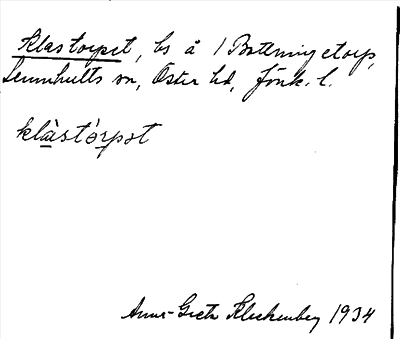 Klastorpet, ls å 1 Bottningetorp,
Lemnhults sn, Öster hd, Jönk. l.
klàstórpət
Anna-Greta Kleckenberg 1934